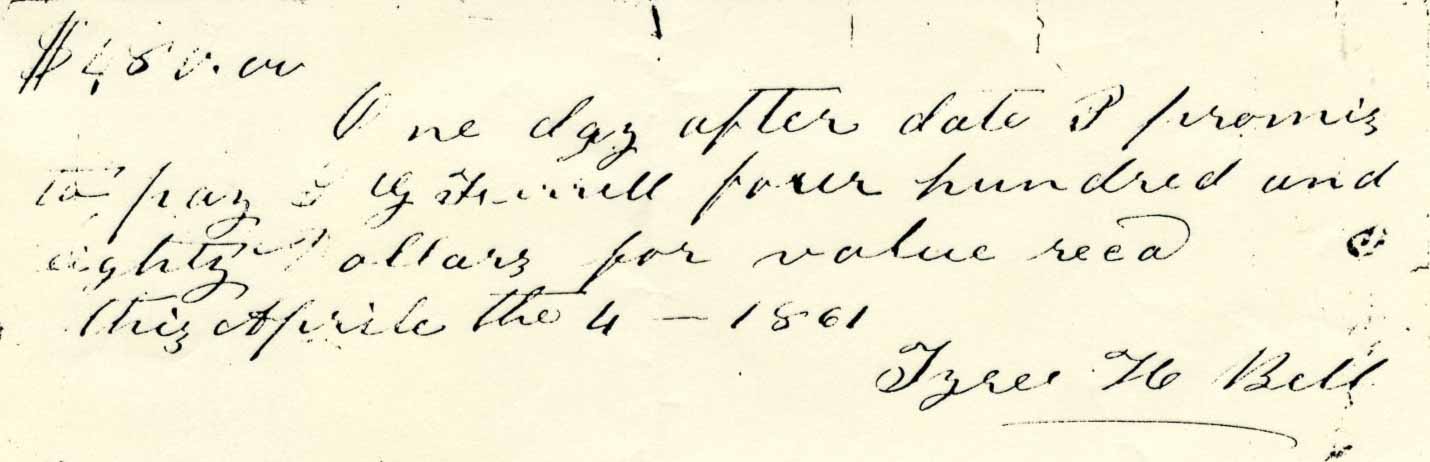 $480.00
One day after date I promis
to pay four hundred and
eighty Dollars for value recd
this Aprile the 4 — 1861
Tyree H Bell